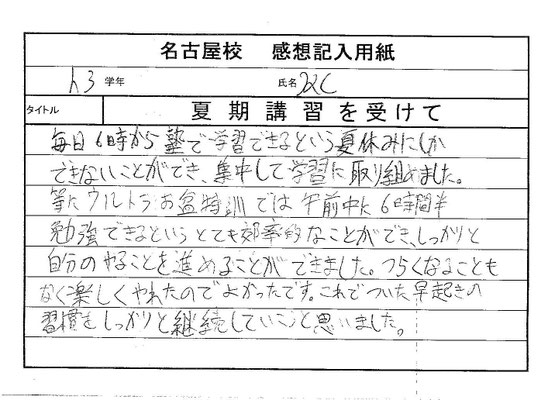 名古屋校 感想記入用紙
h3 学年 氏名
タイトル 夏期講習を受けて
毎日6時から塾で学習できるという夏休みにしか
できないことができ、集中して学習に取り組めました。
またウルトラお盆特訓では午前中に6時間半
勉強できるというとても効率的なことができ、しっかりと
自分のやることを進めることができました。つらくなることも
なく楽しくやれたのでよかったです。これでついた早起きの
習慣をしっかりと継続していこうと思いました。